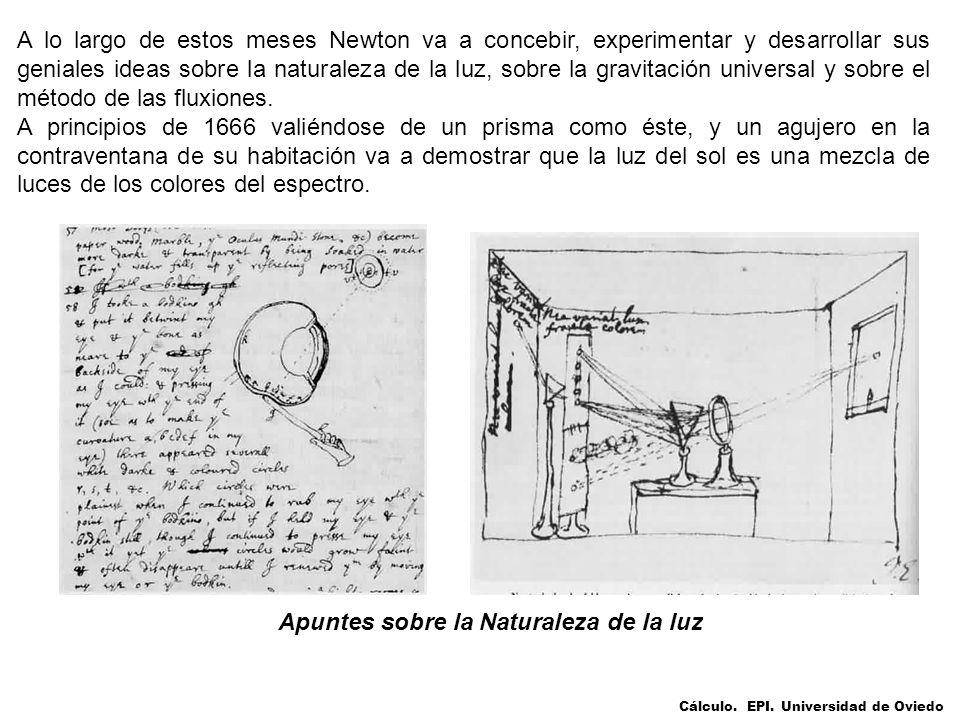 A lo largo de estos meses Newton va a concebir, experimentar y desarrollar sus
geniales ideas sobre la naturaleza de la luz, sobre la gravitación universal y sobre el
método de las fluxiones.
A principios de 1666 valiéndose de un prisma como éste, y un agujero en la
contraventana de su habitación va a demostrar que la luz del sol es una mezcla de
luces de los colores del espectro.
paper, wood, marble, ye Oculus Mundi stone, &c) become
more darke & transparent by being soaked in water
[for ye water fills up ye reflecting pores]
58 I tooke a bodkine gh
& put it betwixt my
eye & ye bone as
neare to ye
backside of my eye
as I could: & pressing
my eye wth ye end of
it (soe as to make ye
curvature a, bcdef in my
eye) there appeared severall
white darke & coloured circles
r, s, t, &c. Which circles were
plainest when I continued to rub my eye wth ye
point of ye bodkine, but if I held my eye & ye
bodkin still, though I continued to presse my eye
wth it yet ye circles would grow faint
& often disappeare untill I renewed ym by moving
my eye or ye bodkin.
Nec variat lux
fracta colorem
Apuntes sobre la Naturaleza de la luz
Cálculo. EPI. Universidad de Oviedo